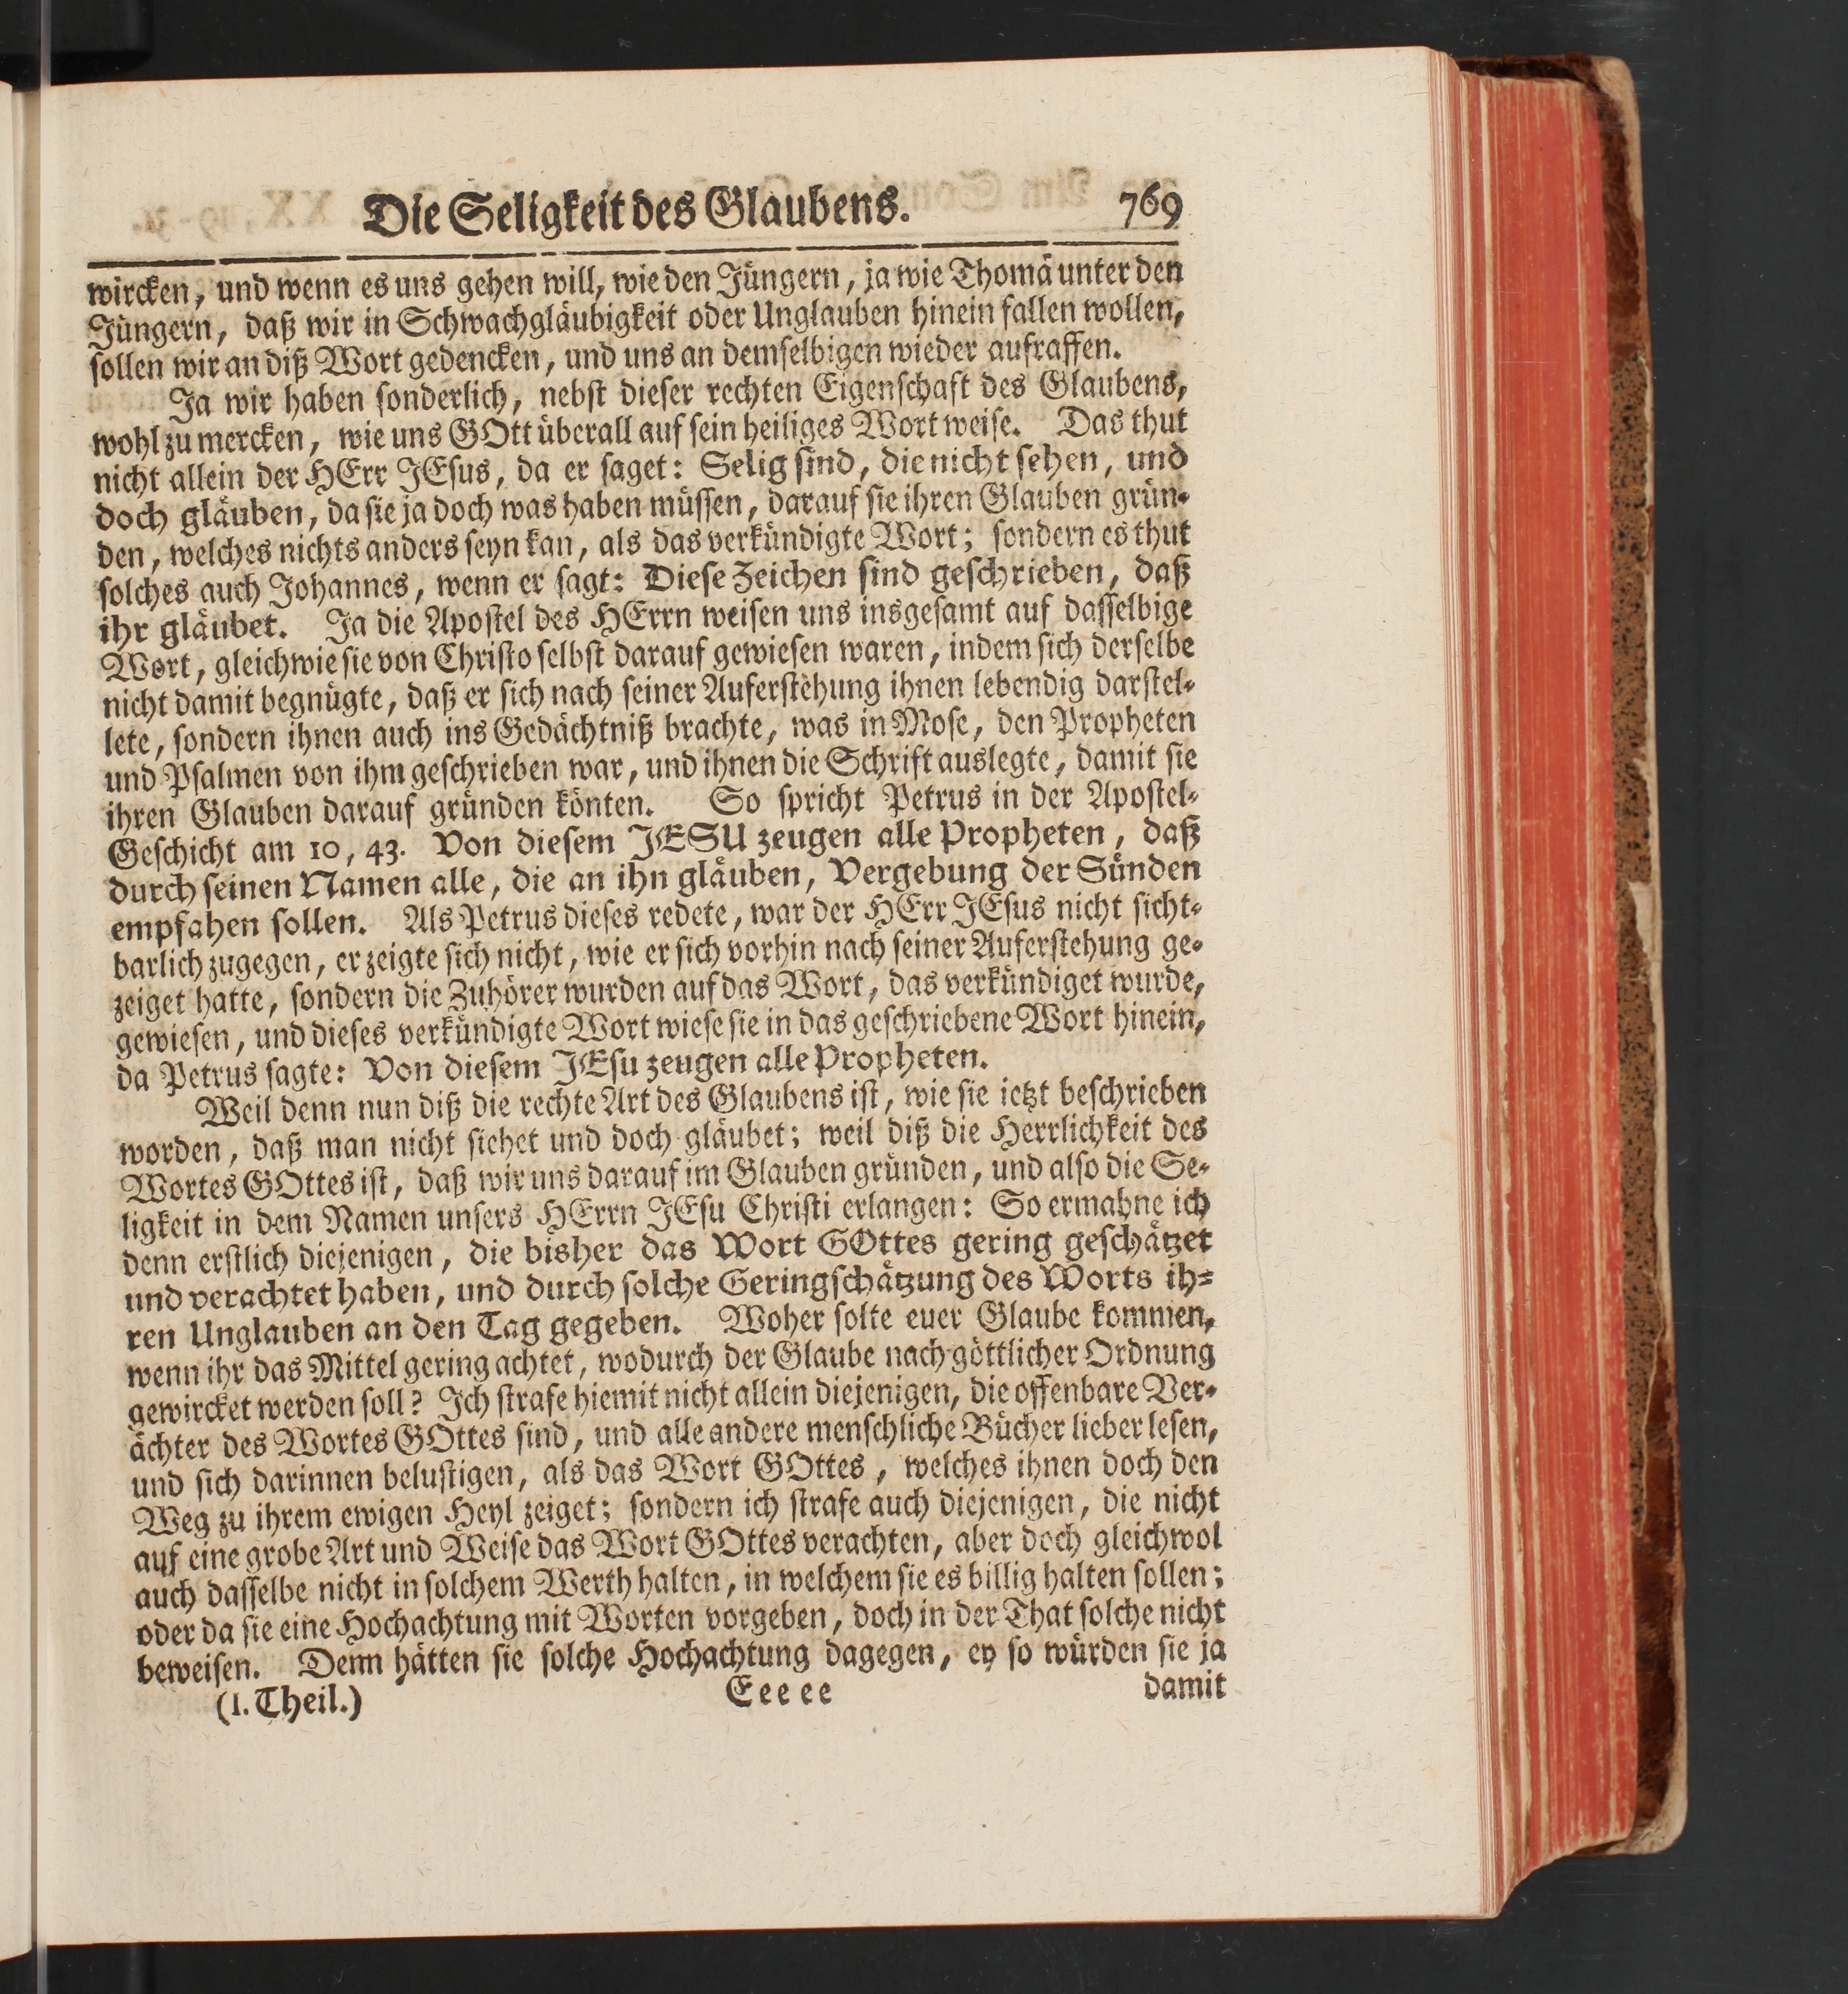 Die Seligkeit des Glaubens. 769
wircken, und wenn es uns gehen will, wie den Jüngern, ja wie Thomä unter den
Jüngern, daß wir in Schwachgläubigkeit oder Unglauben hinein fallen wollen,
sollen wir an diß Wort gedencken, und uns an demselbigen wieder aufraffen.
Ja wir haben sonderlich, nebst dieser rechten Eigenschaft des Glaubens,
wohl zu mercken, wie uns GOtt überall auf sein heiliges Wort weise. Das thut
nicht allein der HErr JEsus, da er saget: Selig sind, die nicht sehen, und
doch gläuben, da sie ja doch was haben müssen, darauf sie ihren Glauben grün-
den, welches nichts anders seyn kan, als das verkündigte Wort; sondern es thut
solches auch Johannes, wenn er sagt: Diese Zeichen sind geschrieben, daß
ihr gläubet. Ja die Apostel des HErrn weisen uns insgesamt auf dasselbige
Wort, gleichwie sie von Christo selbst darauf gewiesen waren, indem sich derselbe
nicht damit begnügte, daß er sich nach seiner Auferstehung ihnen lebendig darstel-
lete, sondern ihnen auch ins Gedächtniß brachte, was in Mose, den Propheten
und Psalmen von ihm geschrieben war, und ihnen die Schrift auslegte, damit sie
ihren Glauben darauf gründen könten. So spricht Petrus in der Apostel-
Geschicht am 10, 43. Von diesem JESU zeugen alle Propheten, daß
durch seinen Namen alle, die an ihn gläuben, Vergebung der Sünden
empfahen sollen. Als Petrus dieses redete, war der HErr JEsus nicht sicht-
barlich zugegen, er zeigte sich nicht, wie er sich vorhin nach seiner Auferstehung ge-
zeiget hatte, sondern die Zuhörer wurden auf das Wort, das verkündiget wurde,
gewiesen, und dieses verkündigte Wort wiese sie in das geschriebene Wort hinein,
da Petrus sagte: Von diesem JEsu zeugen alle Propheten.
Weil denn nun diß die rechte Art des Glaubens ist, wie sie ietzt beschrieben
worden, daß man nicht siehet und doch gläubet; weil diß die Herrlichkeit des
Wortes GOttes ist, daß wir uns darauf im Glauben gründen, und also die Se-
ligkeit in dem Namen unsers HErrn JEsu Christi erlangen: So ermahne ich
denn erstlich diejenigen, die bisher das Wort GOttes gering geschätzet
und verachtet haben, und durch solche Geringschätzung des Worts ih-
ren Unglauben an den Tag gegeben. Woher solte euer Glaube kommen,
wenn ihr das Mittel gering achtet, wodurch der Glaube nach göttlicher Ordnung
gewircket werden soll? Ich strafe hiemit nicht allein diejenigen, die offenbare Ver-
ächter des Wortes GOttes sind, und alle andere menschliche Bücher lieber lesen,
und sich darinnen belustigen, als das Wort GOttes, welches ihnen doch den
Weg zu ihrem ewigen Heyl zeiget; sondern ich strafe auch diejenigen, die nicht
auf eine grobe Art und Weise das Wort GOttes verachten, aber doch gleichwol
auch dasselbe nicht in solchem Werth halten, in welchem sie es billig halten sollen;
oder da sie eine Hochachtung mit Worten vorgeben, doch in der That solche nicht
beweisen. Denn hätten sie solche Hochachtung dagegen, ey so würden sie ja
(I. Theil.) Eeeee damit